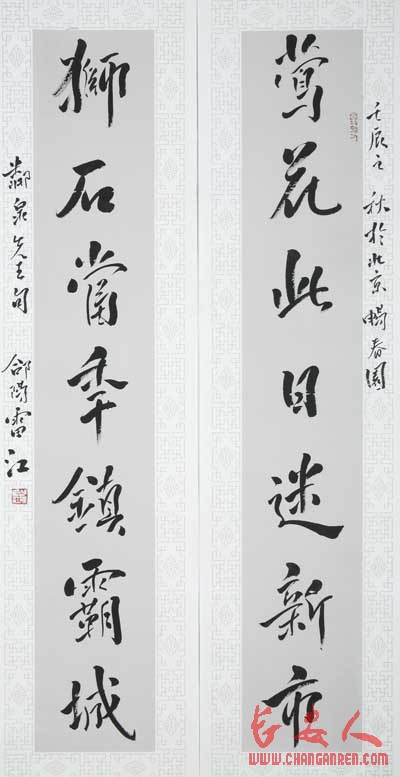 壬辰之秋於北京暢春園
鶯花此日迷新市
獅石當年鎮霸城
泉先生句
郃陽雷江
长安人
WWW.CHANGANREN.COM